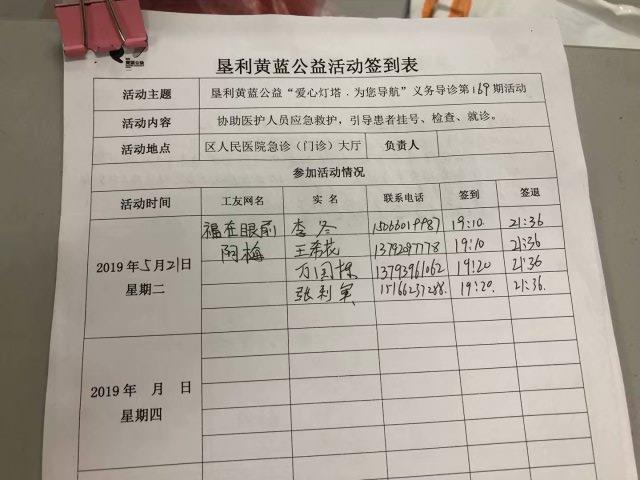 垦利黄蓝公益活动签到表
活动主题 垦利黄蓝公益“爱心灯塔．为您导航”义务导诊第169期活动
活动内容 协助医护人员应急救护，引导患者挂号、检查、就诊。
活动地点 区人民医院急诊（门诊）大厅 负责人
参加活动情况
活动时间 工友网名 实名 联系电话 签到 签退
福在眼前 李冬 15066019987 19:10. 21:36
阿梅 王希花 19:10 21:36
2019年5月21日
万国栋 13793961062 19:20 21:36
星期二
张利军 15166237288. 19:20. 21:36.
2019年 月 日
星期四